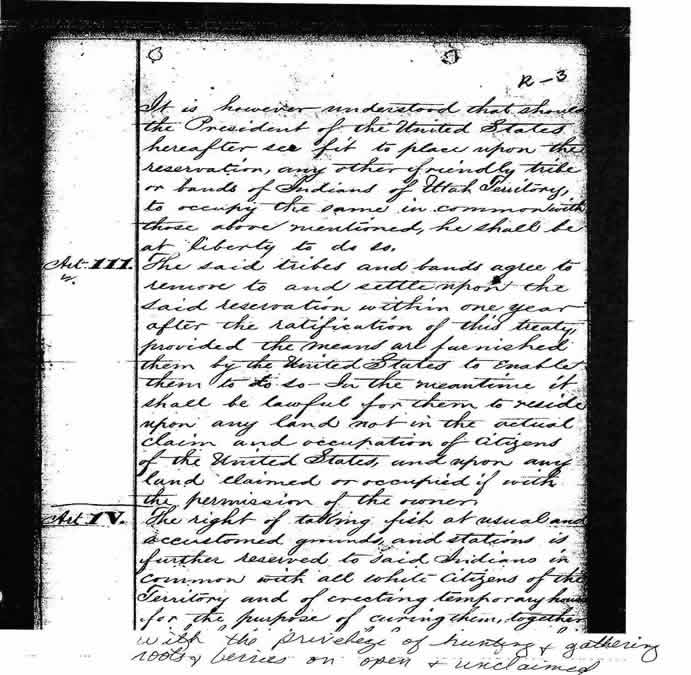 R-3
It is however understood that should
the President of the United States
hereafter see fit to place upon the
reservation, any other friendly tribe
or bands of Indians of Utah Territory,
to occupy the same in common with
those above mentioned, he shall be
at liberty to do so.
Art. III. The said tribes and bands agree to
remove to and settle upon the
said reservation within one year
after the ratification of this treaty,
provided the means are furnished
them by the United States to enable
them to do so - In the meantime it
shall be lawful for them to reside
upon any land not in the actual
claim and occupation of Citizens
of the United States, and upon any
land claimed or occupied if with
the permission of the owner.
Art IV. The right of taking fish at usual and
accustomed grounds and stations is
further reserved to said Indians in
common with all white Citizens of the
Territory and of erecting temporary houses
for the purpose of curing them, together
with the priveleze of hunting & gathering
roots & berries on open & unclaimed